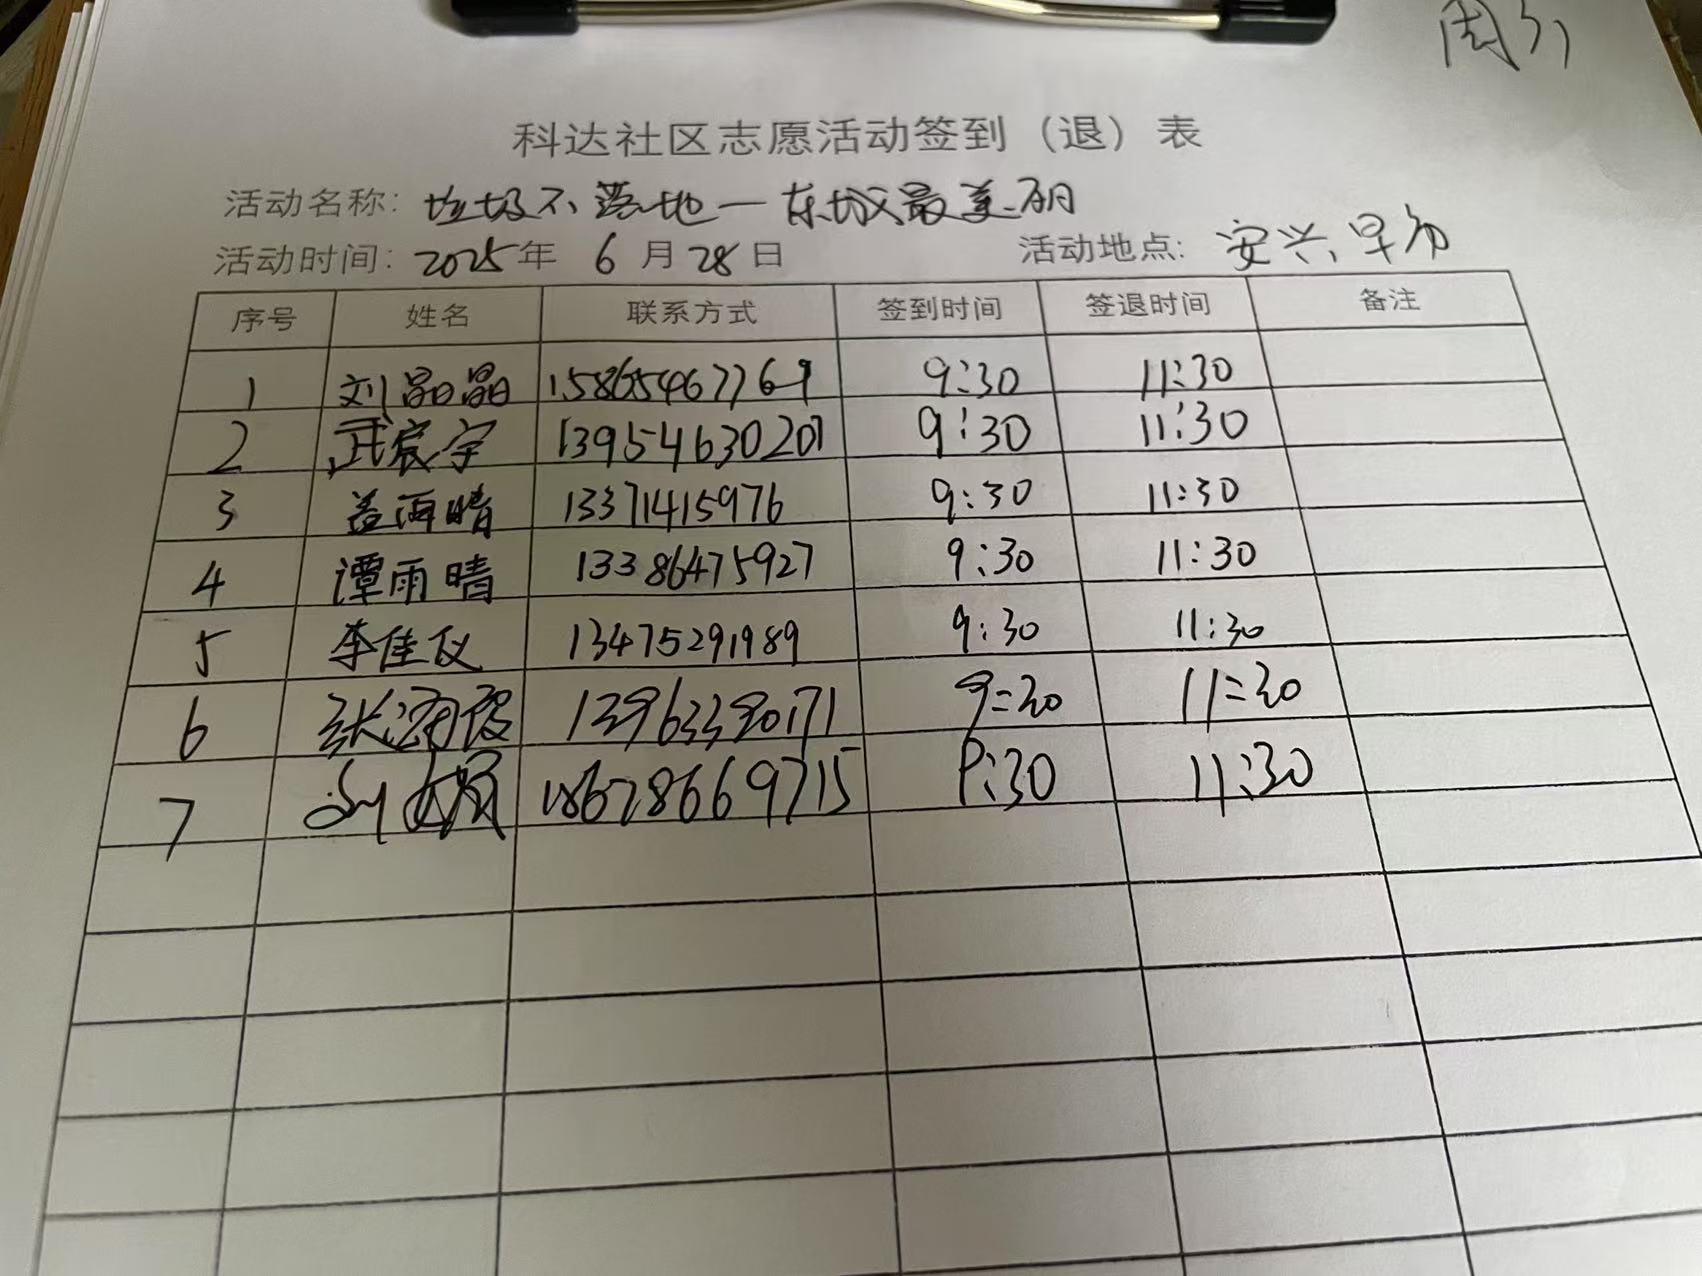 周
科达社区志愿活动签到（退）表
活动名称：垃圾不落地一东城最美丽
活动时间：2025年 6 月 28 日 活动地点：安兴、早市
序号 姓名 联系方式 签到时间 签退时间 备注
1 刘晶晶 15865467769 9:30 11:30
2 武宸宇 13954630201 9:30 11:30
3 盖雨晴 13371415976 9:30 11:30
4 谭雨晴 13386475927 9:30 11:30
5 李佳仪 13475291989 9:30 11:30
6 张海霞 13963390171 9:30 11:30
7 18678669715 9:30 11:30